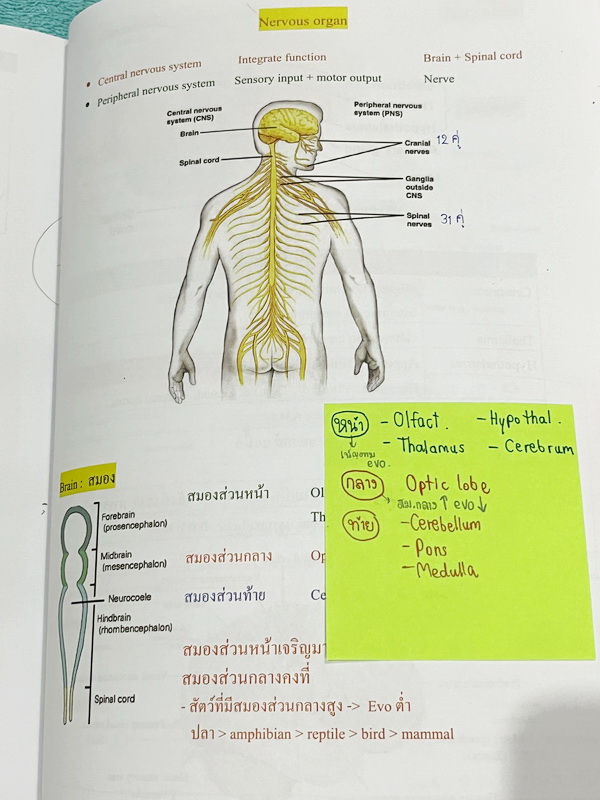 Nervous organ
• Central nervous system Integrate function Brain + Spinal cord
• Peripheral nervous system Sensory input + motor output Nerve
Central nervous
system (CNS)
Peripheral nervous
system (PNS)
Brain
Cranial
nerves
12 คู่
Spinal cord
Ganglia
outside
CNS
Spinal
nerves
31 คู่
หน้า - Olfact. - Hypothal.
- Thalamus - Cerebrum
evo.
กลาง Optic lobe
สม.กลาง ↑ evo ↓
ท้าย - Cerebellum
- Pons
- Medulla
Brain : สมอง
Forebrain
(prosencephalon)
สมองส่วนหน้า Ol
Th
Midbrain
(mesencephalon)
สมองส่วนกลาง Op
Neurocoele
สมองส่วนท้าย Ce
Hindbrain
(rhombencephalon)
Spinal cord
สมองส่วนหน้าเจริญมา
สมองส่วนกลางคงที่
- สัตว์ที่มีสมองส่วนกลางสูง -> Evo ต่ำ
ปลา > amphibian > reptile > bird > mammal